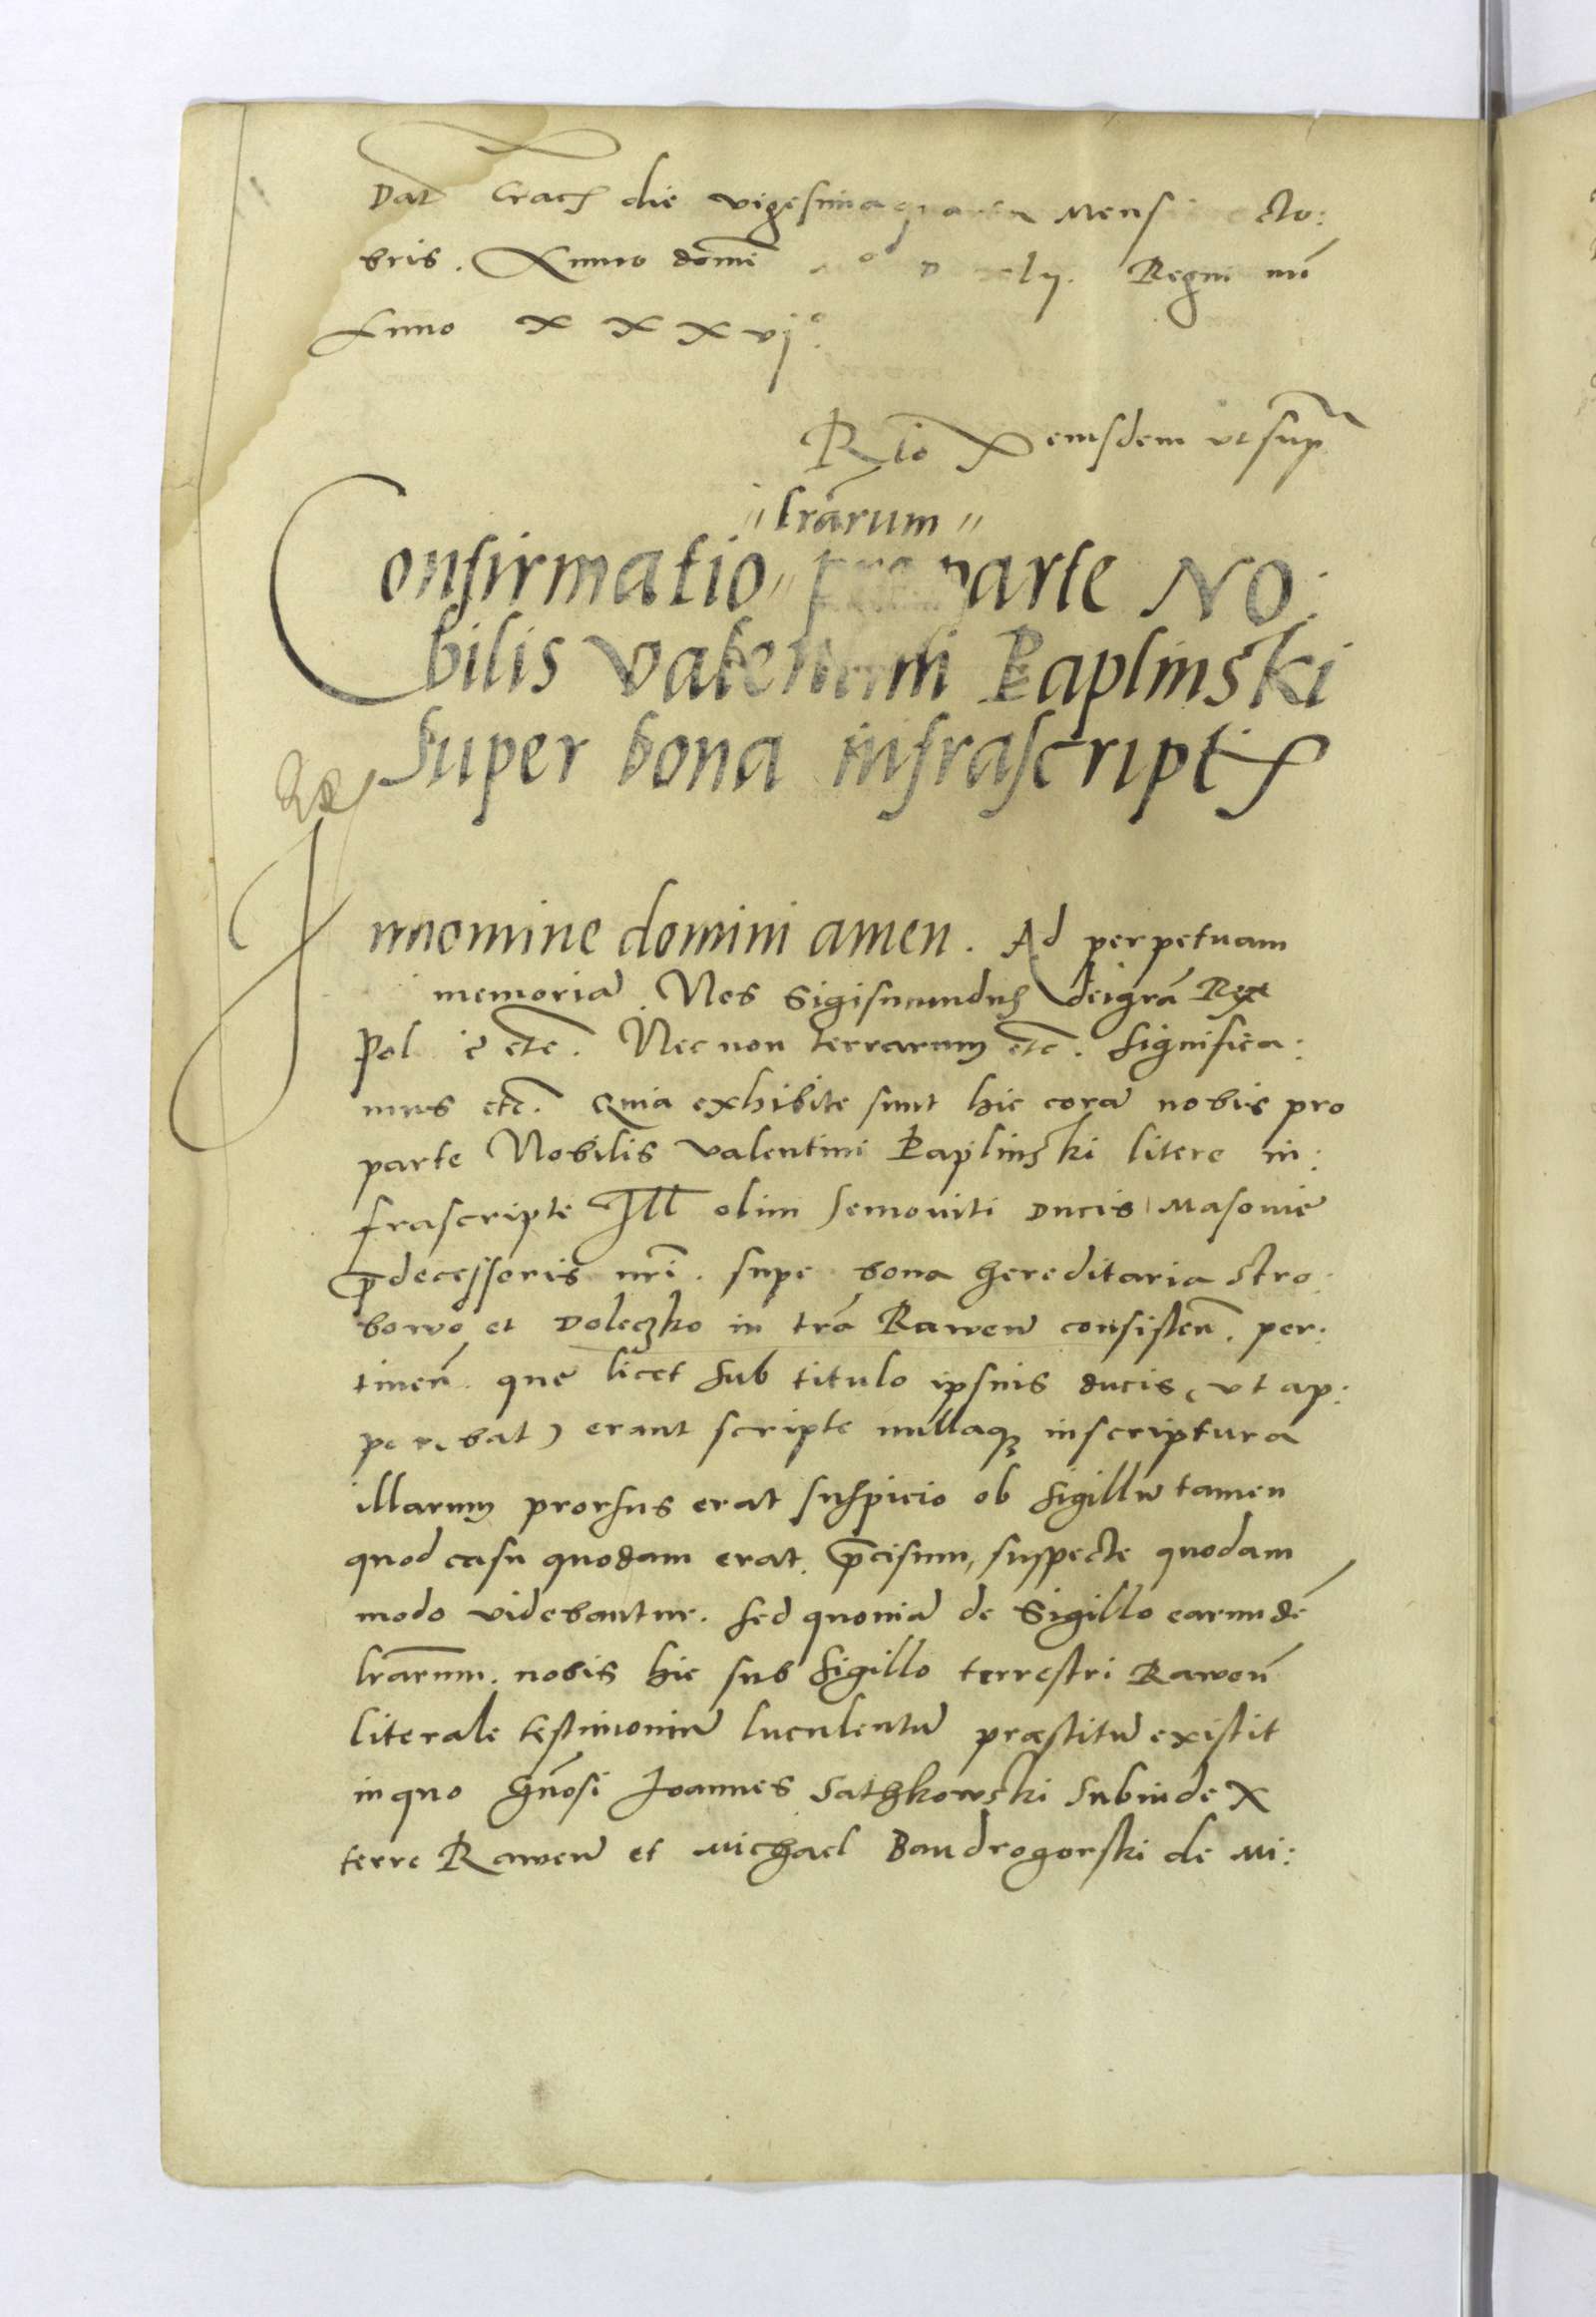 Dat Crac~ die vigesimaquarta Mens cto:
bris. Anno domi D xlij. Regni nri
Anno X X X vj°.
R~lo eiusdem ut supra
"lrarum"
Confirmatio" pro parte No:
bilis Valentini Paplinski
super bona infrascript~
Innomine domini amen. Ad perpetuam
memoria~ Nos Sigismundus deigra~ Rex
Pol ie etc. Nec non terrarum etc. significa:
mus etc. Quia exhibite sunt hic cora~ nobis pro
parte Nobilis Valentini Paplinski litere in:
frascripte Ill~ olim Semoviti Ducis Masovie
p~decessoris nri~. supe bona hereditaria Stro:
bowo et Doleczko in tra~ Rawen~ consisten~. per:
tinen~. que licet sub titulo ipsius ducis (ut ap:
pe rebat) erant scripte nullaq~ inscriptura
illarum prorsus erat suspicio ob sigillu~ tamen
quod casu quodam erat p~cisum, suspecte quodam
modo videbantur. sed quonia~ de Sigillo earunde~
lrarum. nobis hic sub sigillo terrestri Rawen~
literale testimoniu~ luculentu~ præstitu~ existit
in quo Gnosi Joannes Sathkowski Subiudex
terre Rawen~ et Michael Bandrogorski de Mi: